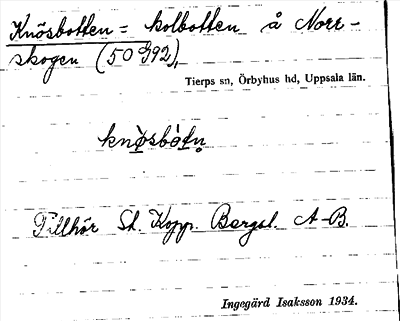 Knösbotten = kolbotten å Norr-
skogen (50992),
Tierps sn, Örbyhus hd, Uppsala län.
knö̀sbòtn̥
Tillhör St. Kopp. Bergsl. A-B.
Ingegärd Isaksson 1934.